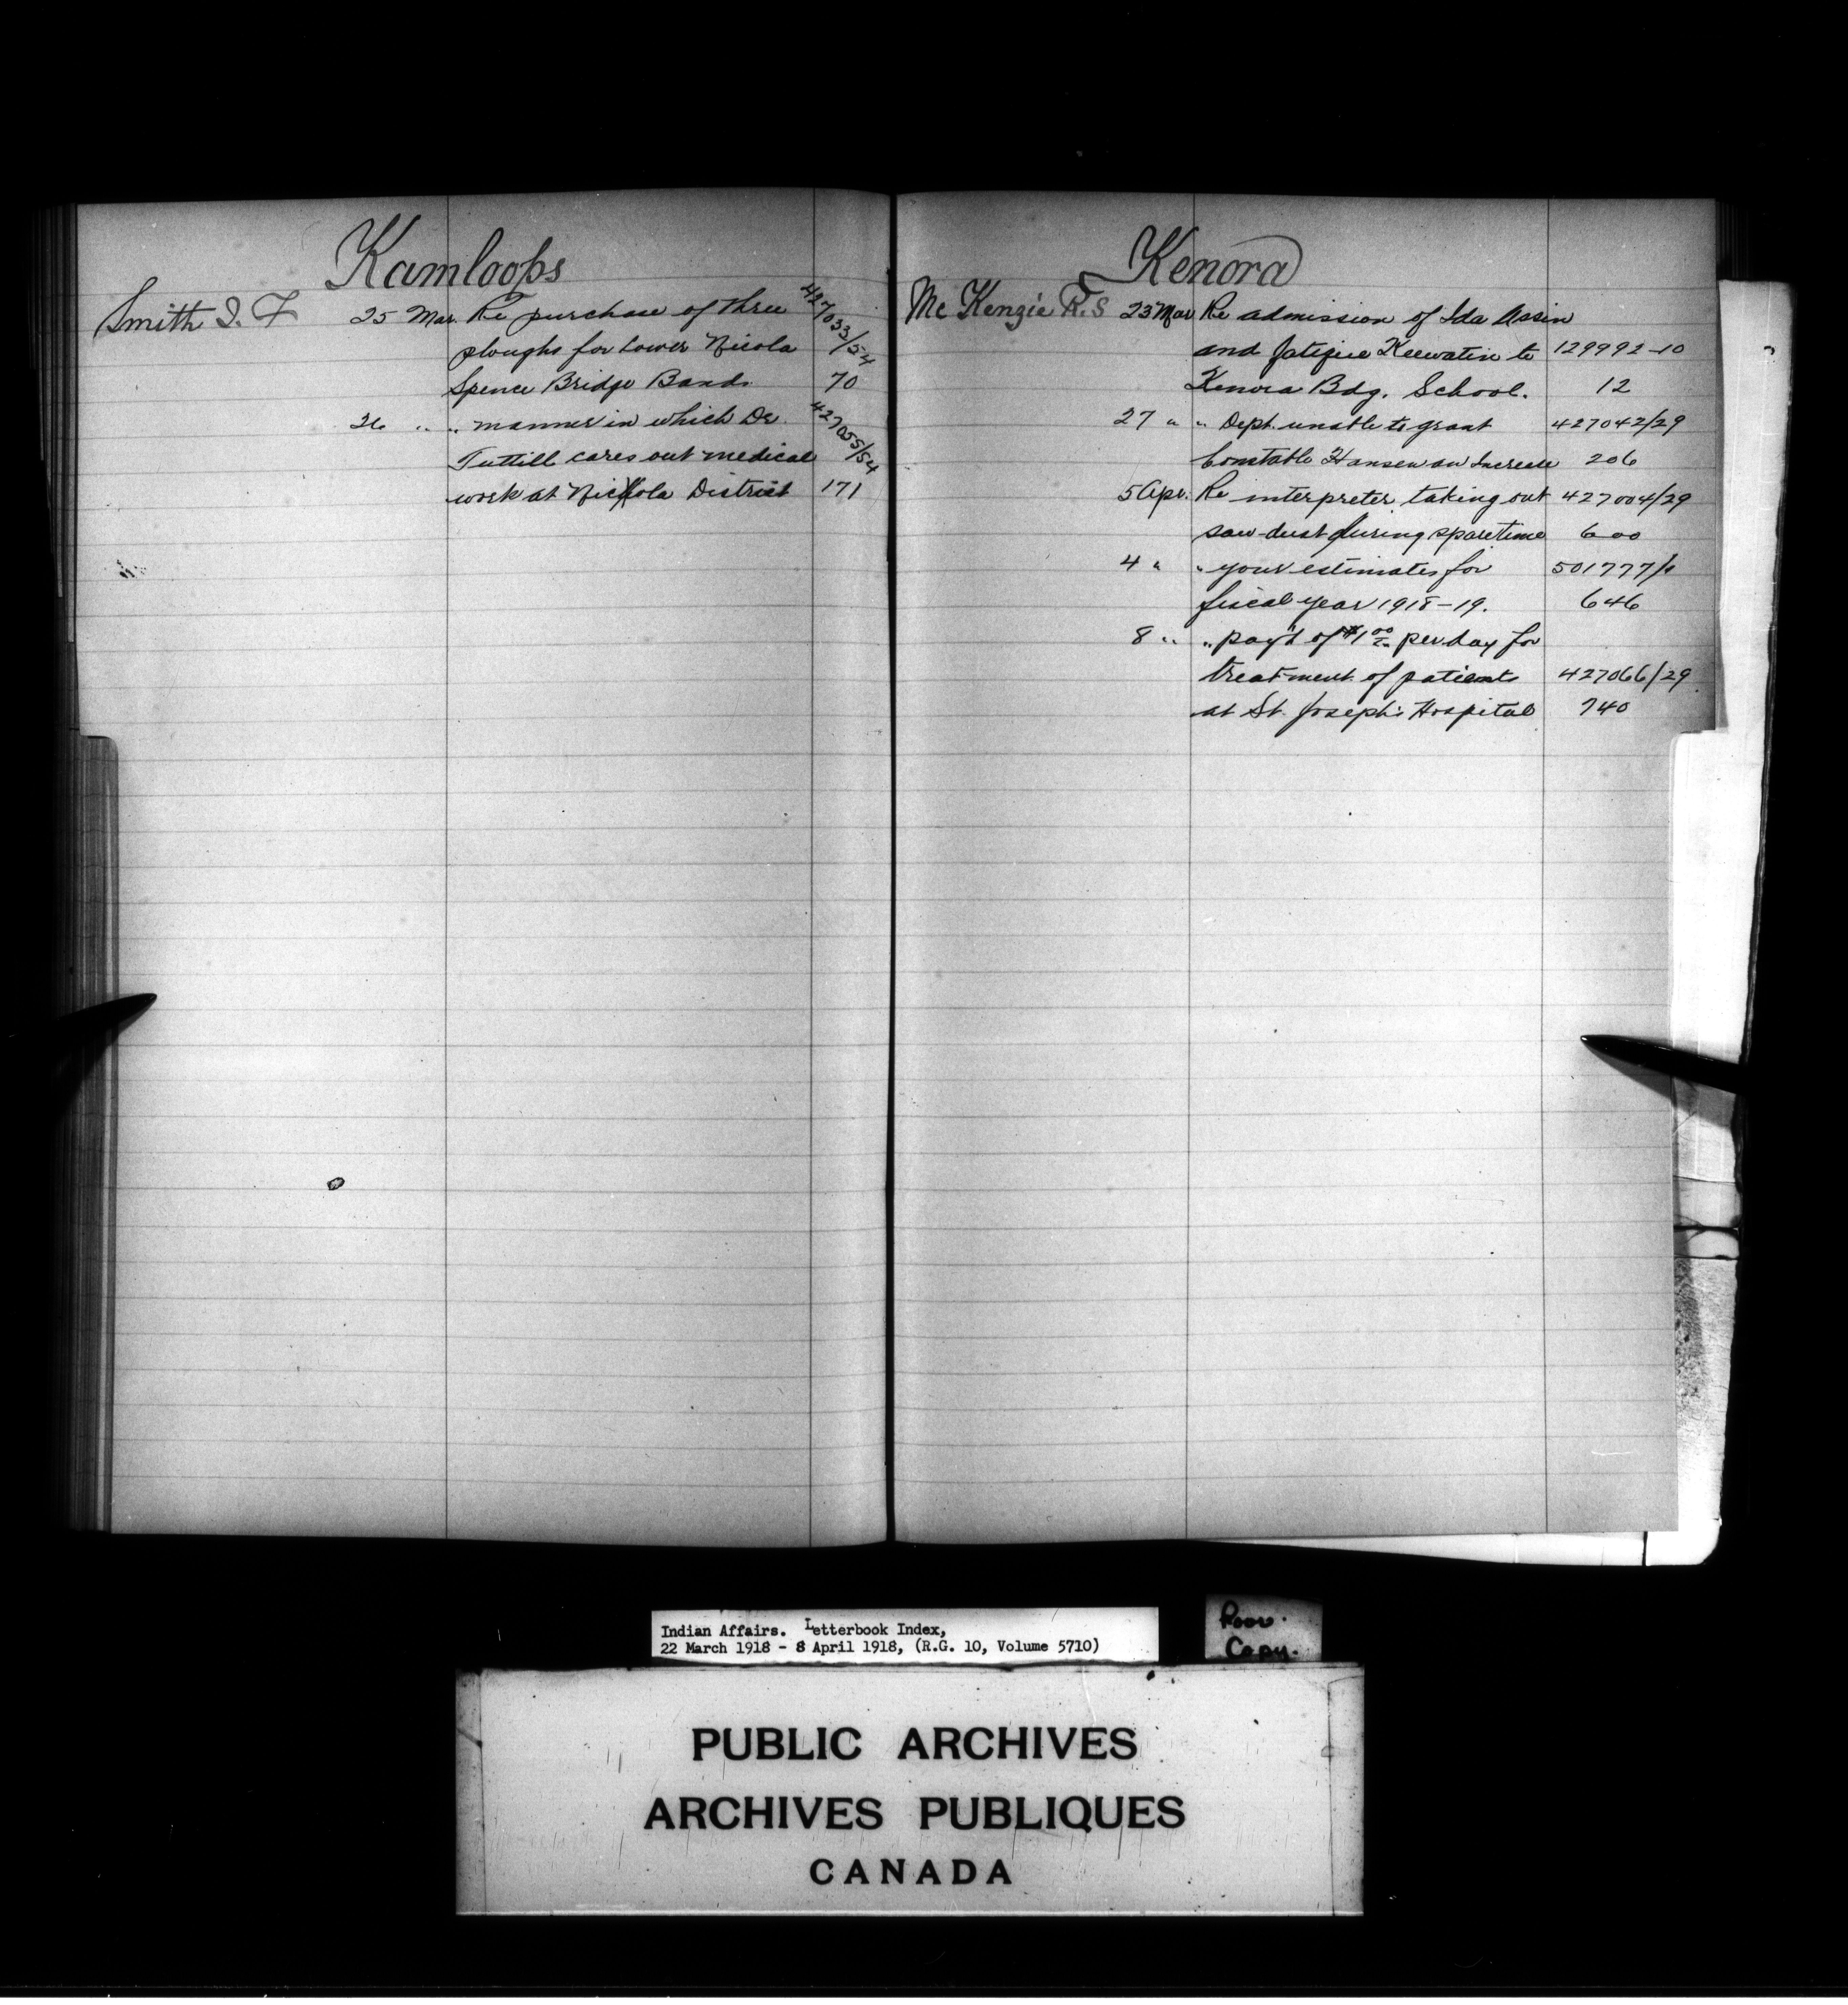 Kamloops
Smith J. F 25 Mar. Re purchase of three 427033/54
ploughs for Lower Nicola
Spence Bridge Bands. 70
26 " " manner in which Dr. 427055/54
Tuttill cares out medical
work at Nickola District 171
Kenora
Mc Kenzie R. S 23 Mar Re admission of Ida Assin
and fatique Keewatin to 129992-10
Kenora Bdg. School. 12
27 " " Dept. unable to grant 427042/29
Constable Hansen an Increase 206
5 Apr. Re interpreter taking out 427004/29
saw-dust during spare time 600
4 " " your estimates for 501777/1
fiscal year 1918-19. 646
8 " " pay't of $1.00 per day for
treatment of patients 427066/29
at St. Joseph's Hospital 740
Indian Affairs. Letterbook Index,
22 March 1918 - 8 April 1918, (R.G. 10, Volume 5710)
Poor.
Copy.
PUBLIC ARCHIVES
ARCHIVES PUBLIQUES
CANADA